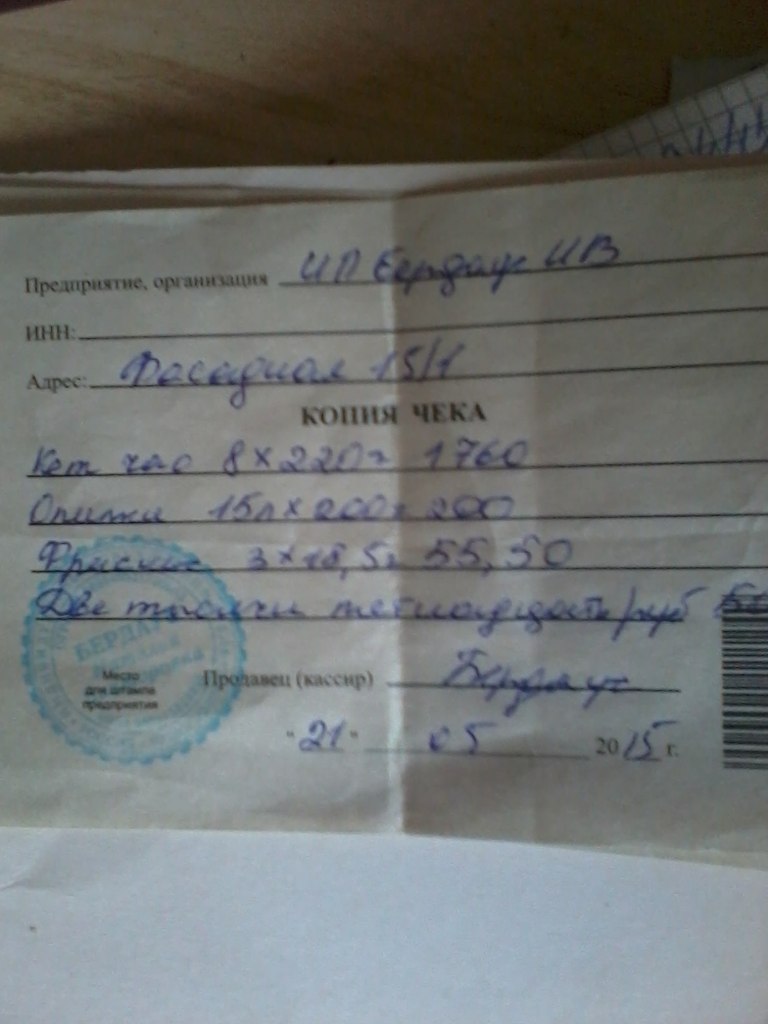 Предприятие, организация ИП Бердаус ИВ
ИНН:
Адрес: Фасадная 15/1
КОПИЯ ЧЕКА
Кет час 8 х 220 = 1760
Опилки 15л х 200 = 200
Фрискис 3 х 18,5 = 55,50
Две тысячи пятнадцать руб
БЕРДАУС
Место
для штампа
предприятия
Продавец (кассир)
"21" 05 2015 г.